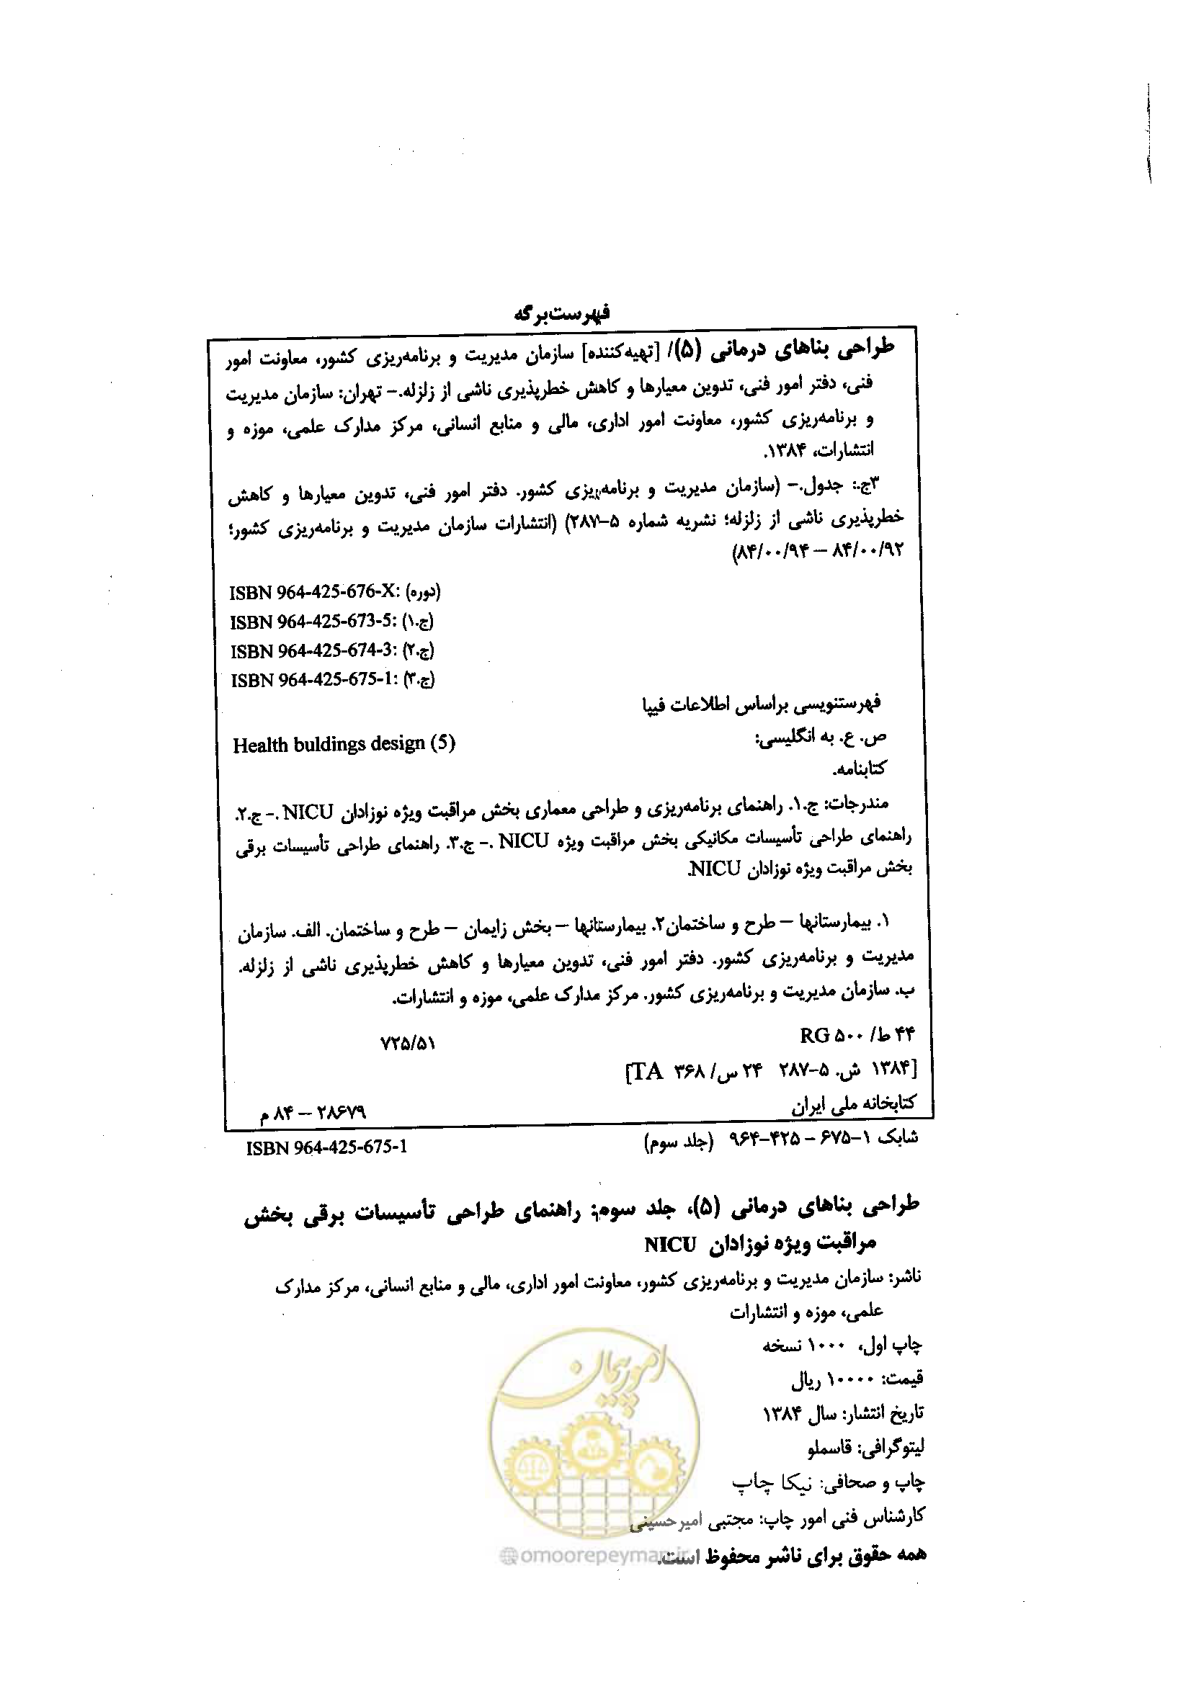 فهرست‌برگه
طراحی بناهای درمانی (۵)/ [تهیه‌کننده] سازمان مدیریت و برنامه‌ریزی کشور، معاونت امور
فنی، دفتر امور فنی، تدوین معیارها و کاهش خطرپذیری ناشی از زلزله.– تهران: سازمان مدیریت
و برنامه‌ریزی کشور، معاونت امور اداری، مالی و منابع انسانی، مرکز مدارک علمی، موزه و
انتشارات، ۱۳۸۴.
۳ج.: جدول.– (سازمان مدیریت و برنامه‌ریزی کشور. دفتر امور فنی، تدوین معیارها و کاهش
خطرپذیری ناشی از زلزله؛ نشریه شماره ۵–۲۸۷) (انتشارات سازمان مدیریت و برنامه‌ریزی کشور؛
۸۴/۰۰/۹۲ – ۸۴/۰۰/۹۴)
ISBN 964-425-676-X: (دوره)
ISBN 964-425-673-5: (ج.۱)
ISBN 964-425-674-3: (ج.۲)
ISBN 964-425-675-1: (ج.۳)
فهرستنویسی براساس اطلاعات فیپا
ص. ع. به انگلیسی: Health buldings design (5)
کتابنامه.
مندرجات: ج.۱. راهنمای برنامه‌ریزی و طراحی معماری بخش مراقبت ویژه نوزادان NICU .– ج.۲.
راهنمای طراحی تأسیسات مکانیکی بخش مراقبت ویژه NICU .– ج.۳. راهنمای طراحی تأسیسات برقی
بخش مراقبت ویژه نوزادان NICU.
۱. بیمارستانها – طرح و ساختمان۲. بیمارستانها – بخش زایمان – طرح و ساختمان. الف. سازمان
مدیریت و برنامه‌ریزی کشور. دفتر امور فنی، تدوین معیارها و کاهش خطرپذیری ناشی از زلزله.
ب. سازمان مدیریت و برنامه‌ریزی کشور. مرکز مدارک علمی، موزه و انتشارات.
۴۴ ط/ ۵۰۰ RG ۷۲۵/۵۱
[۱۳۸۴ ش. ۵–۲۸۷ ۲۴ س/ ۳۶۸ TA]
کتابخانه ملی ایران ۲۸۶۷۹ – ۸۴ م
شابک ۱–۶۷۵ – ۴۲۵–۹۶۴ (جلد سوم) ISBN 964-425-675-1
طراحی بناهای درمانی (۵)، جلد سوم: راهنمای طراحی تأسیسات برقی بخش
مراقبت ویژه نوزادان NICU
ناشر: سازمان مدیریت و برنامه‌ریزی کشور، معاونت امور اداری، مالی و منابع انسانی، مرکز مدارک
علمی، موزه و انتشارات
چاپ اول، ۱۰۰۰ نسخه
قیمت: ۱۰۰۰۰ ریال
تاریخ انتشار: سال ۱۳۸۴
لیتوگرافی: قاسملو
چاپ و صحافی: نیکا چاپ
کارشناس فنی امور چاپ: مجتبی امیرحسینی
همه حقوق برای ناشر محفوظ است.
امور پیمان
@omoorepeyman.ir